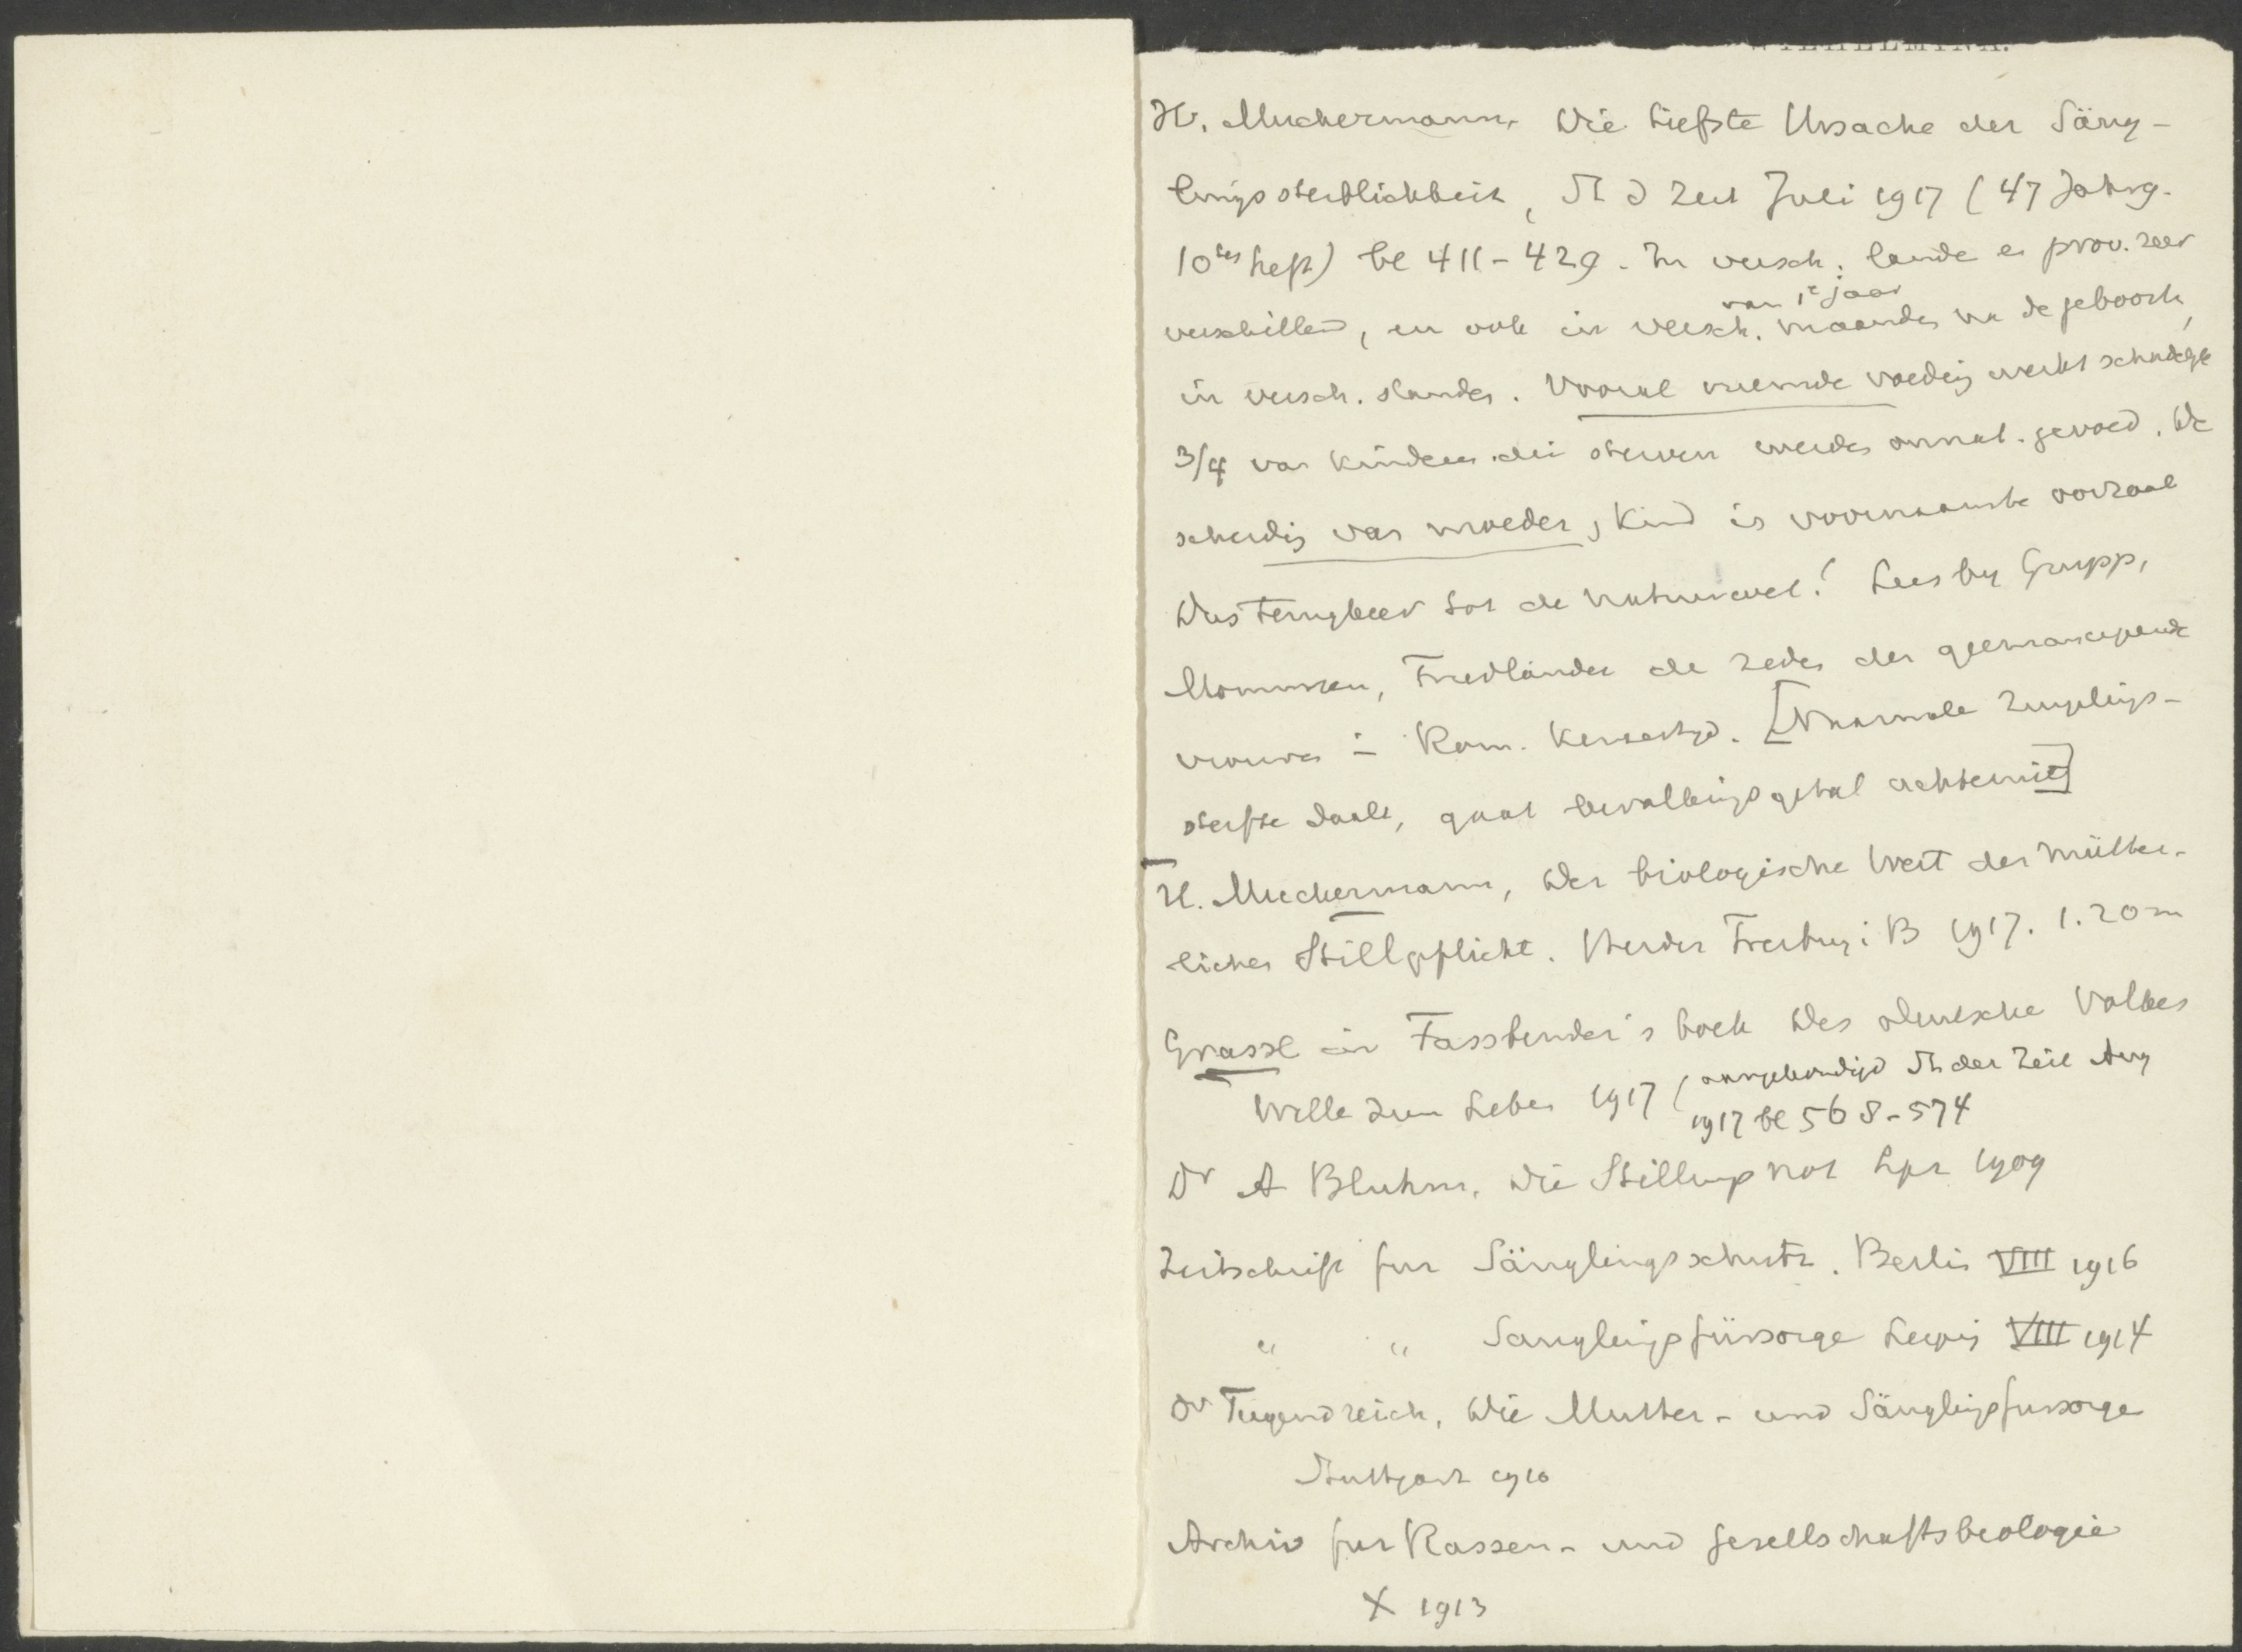 WILHELMINA.
H. Muckermann, Die tiefste Ursache der Säug-
lingssterblichkeit, St d Zeit Juli 1917 (47 Jahrg.
10tes Heft) bl 411-429. In versch. lande en prov. zeer
van 1e jaar
verschillend, en ook in versch. maanden na de geboorte,
in versch. standen. Vooral vreemde voeding werkt schadelijk
3/4 van kinderen die sterven werden onnat. gevoed. De
scheiding van moeder, kind is voornaamste oorzaak
Dus terugkeer tot de natuurwet! Lees by Grupp,
Mommsen, Friedländer de zedes der geemancipeerde
vrouwen in Rom. Keizertijd. [Normale zuigelings-
sterfte daalt, gaat bevallingsgetal achteruit]
H. Muckermann, Der biologische Wert der mütter-
lichen Stillpflicht. Herder Freiburg i B 1917. 1.20 m
Grassl in Fassbender's boek Des deutschen Volkes
Wille zum Leben 1917 (aangekondigd St der Zeit Aug
1917 bl 568-574
Dr A Bluhm, Die Stillungsnot Lpz 1909
Zeitschrift fur Säuglingsschutz. Berlin VIII 1916
" " Sauglingsfürsorge Leipzig VIII 1914
Dr Tugendreich, Die Mutter- und Säuglingsfursorge
Stuttgart 1910
Archiv fur Rassen- und Gesellschaftsbiologie
X 1913